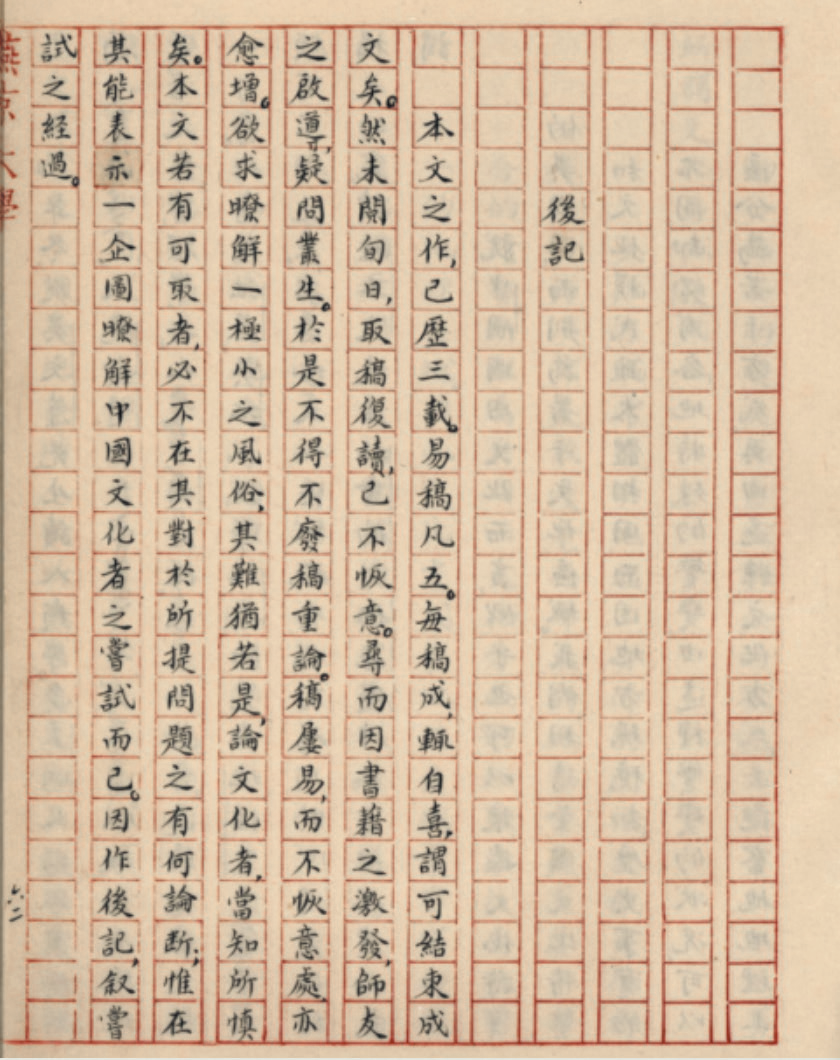 後記
本文之作,已歷三載。易稿凡五。每稿成,輒自喜,謂可結束成
文矣。然未閱旬日,取稿復讀,已不愜意。尋而因書籍之激發,師友
之啟導,疑問叢生。於是不得不廢稿重論。稿屢易,而不愜意處,亦
愈增。欲求瞭解一極小之風俗,其難猶若是,論文化者,當知所慎
矣。本文若有可取者,必不在其對於所提問題之有何論斷;惟在
其能表示一企圖瞭解中國文化者之嘗試而已。因作後記,叙嘗
試之經過。
燕京大學
六二